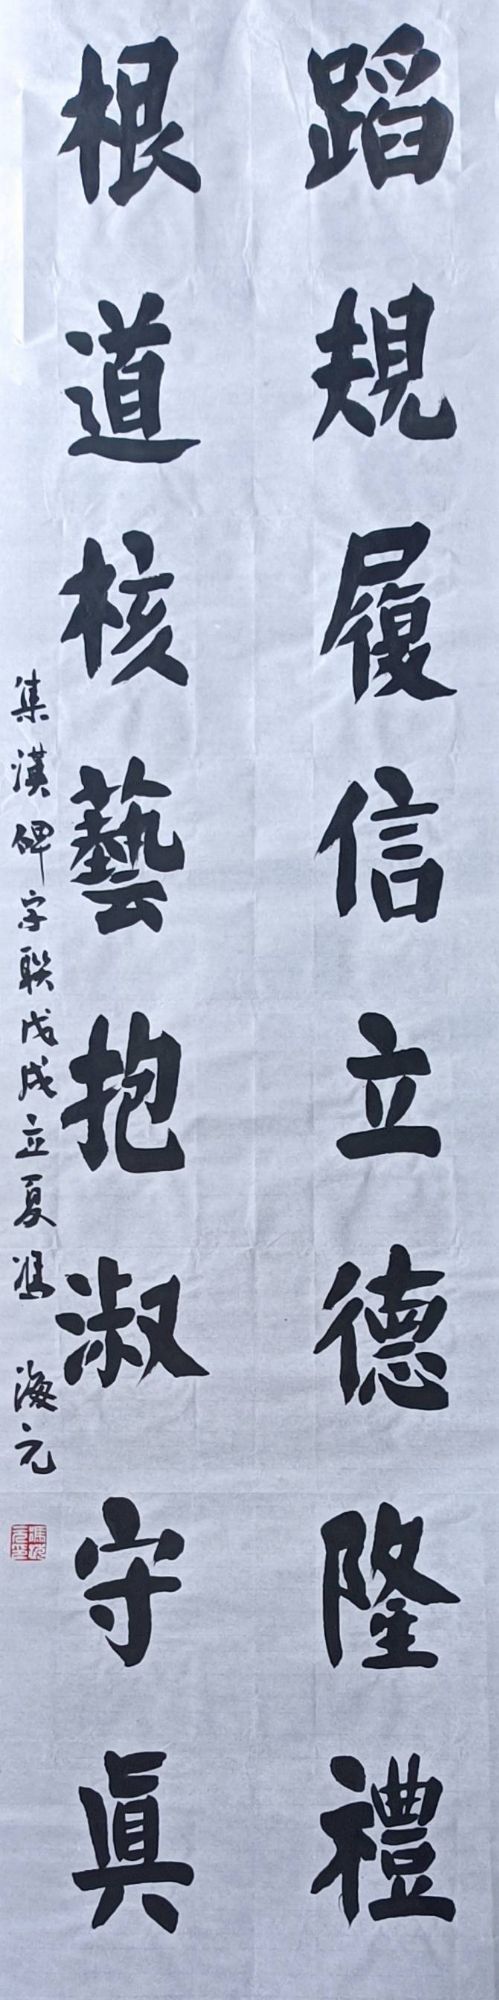 蹈規履信立德隆禮
根道核藝抱淑守眞
集漢碑字联戊戌立夏馮海元